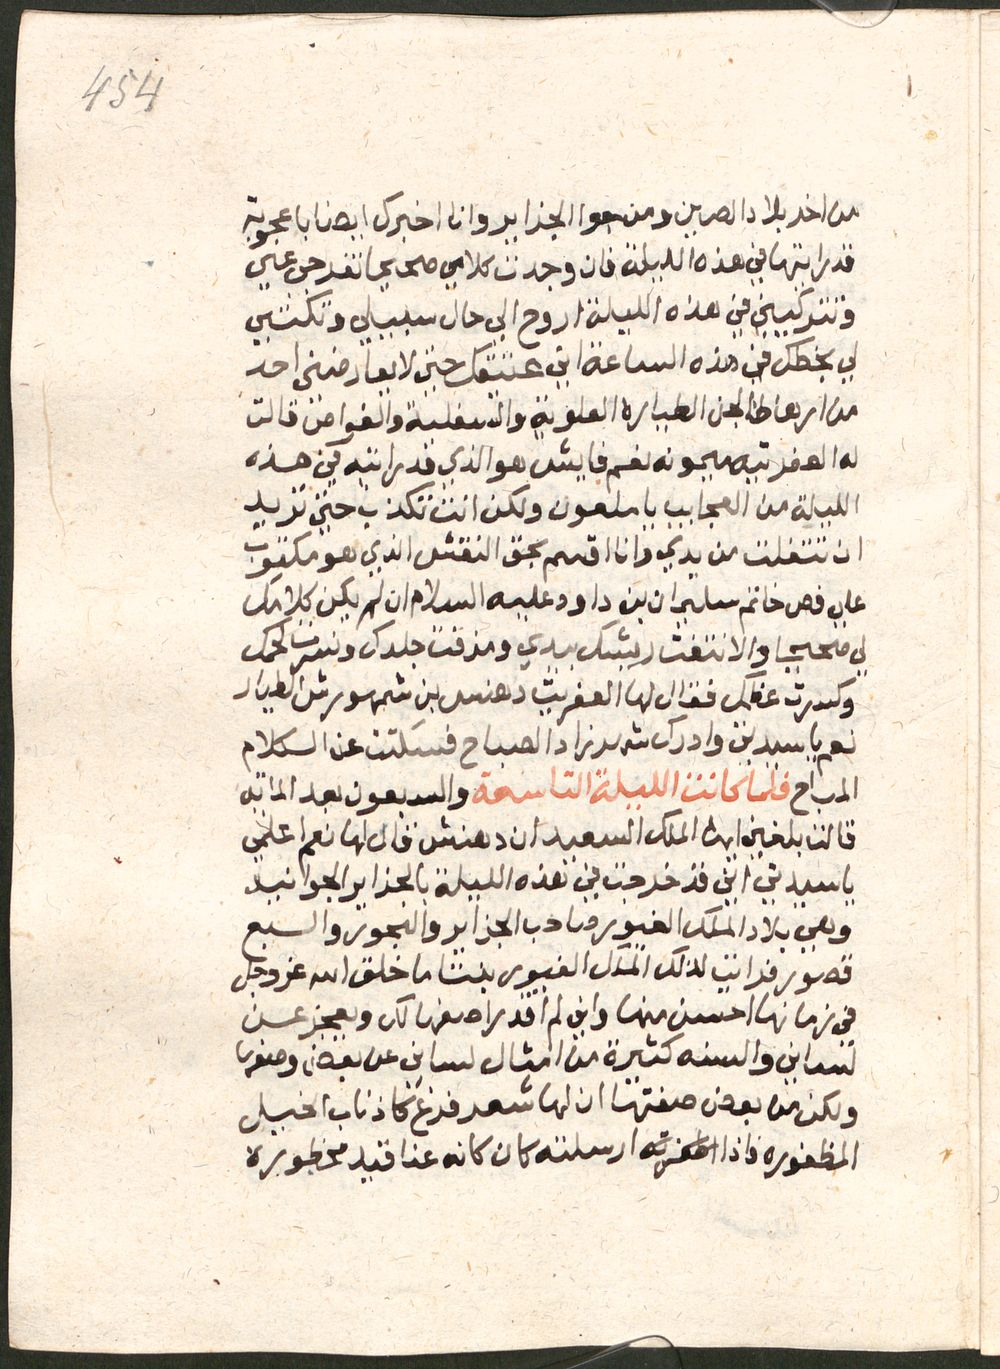 454
من اخر بلاد الصين ومن جوا الجزاير وانا اخبرك ايضا باعجوبة
قد رايتها في هذه الليلة فان وجدت كلامي صحيحا تفرجي عني
وتتركيني في هذه الليلة اروح الي حال سبيلي وتكتبي
لي بخطك في هذه الساعة اني عتيقك حتي لا يعارضني احد
من ارهاط الجن الطيارة العلوية والسفلية والغواص قالت
له العفرتيه ميمونه نعم فايش هو الذي قد رايته في هذه
الليلة من العجايب يا ملعون ولكن انت تكذب حتي تريد
ان تنفلت من يدي وانا اقسم بحق النقش الذي هو مكتوب
علي فص خاتم سليمان بن داود عليه السلام ان لم يكن كلامك
لي صحيحا والا نتفت ريشك بيدي ومزقت جلدك ونسرت لحمك
وكسرت عظمك فقال لها العفريت دهنش بن شمهورش الطيار
نعم يا سيدتي وادرك شهرزاد الصباح فسكتت عن الكلام
المباح فلما كانت الليلة التاسعة والسبعون بعد المائه
قالت بلغني ايها الملك السعيد ان دهنش قال لها نعم اعلمي
يا سيدتي اني قد خرجت في هذه الليلة بالجزاير الجوانية
وهي بلاد الملك الغيور صاحب الجزاير والبحور والسبع
قصور فرايت لذلك الملك الغيور بنتا ما خلق الله عز وجل
في زمانها احسن منها واني لم اقدر اصفها لك ويعجز عن
لساني والسنه كثيرة من امثال لساني عن بعض وصفها
ولكن من بعض صفتها ان لها شعر فرع كاذناب الخيل
المظفوره فاذا ارسلته كان كانه عناقيد مخطوره